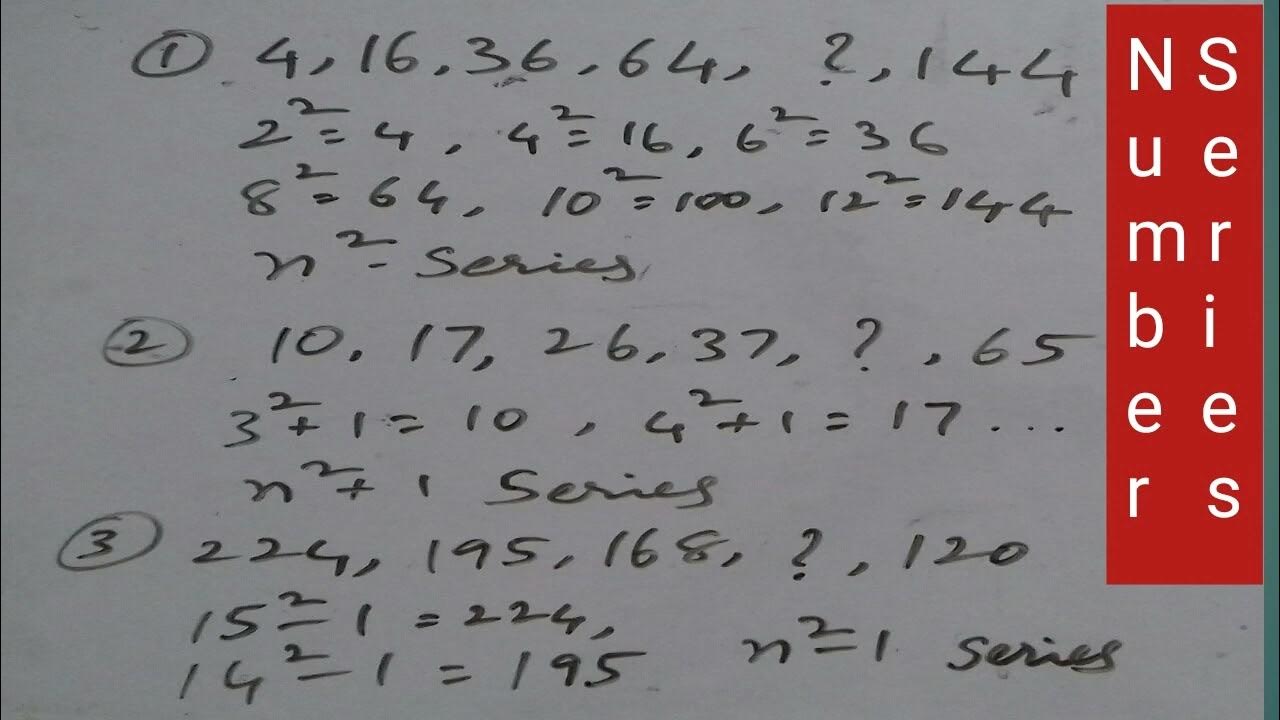 ① 4, 16, 36, 64, ?, 144
2² = 4, 4² = 16, 6² = 36
8² = 64, 10² = 100, 12² = 144
n² - Series
② 10, 17, 26, 37, ?, 65
3² + 1 = 10, 4² + 1 = 17 ...
n² + 1 Series
③ 224, 195, 168, ?, 120
15² - 1 = 224,
14² - 1 = 195
n² - 1 Series
Number
Series